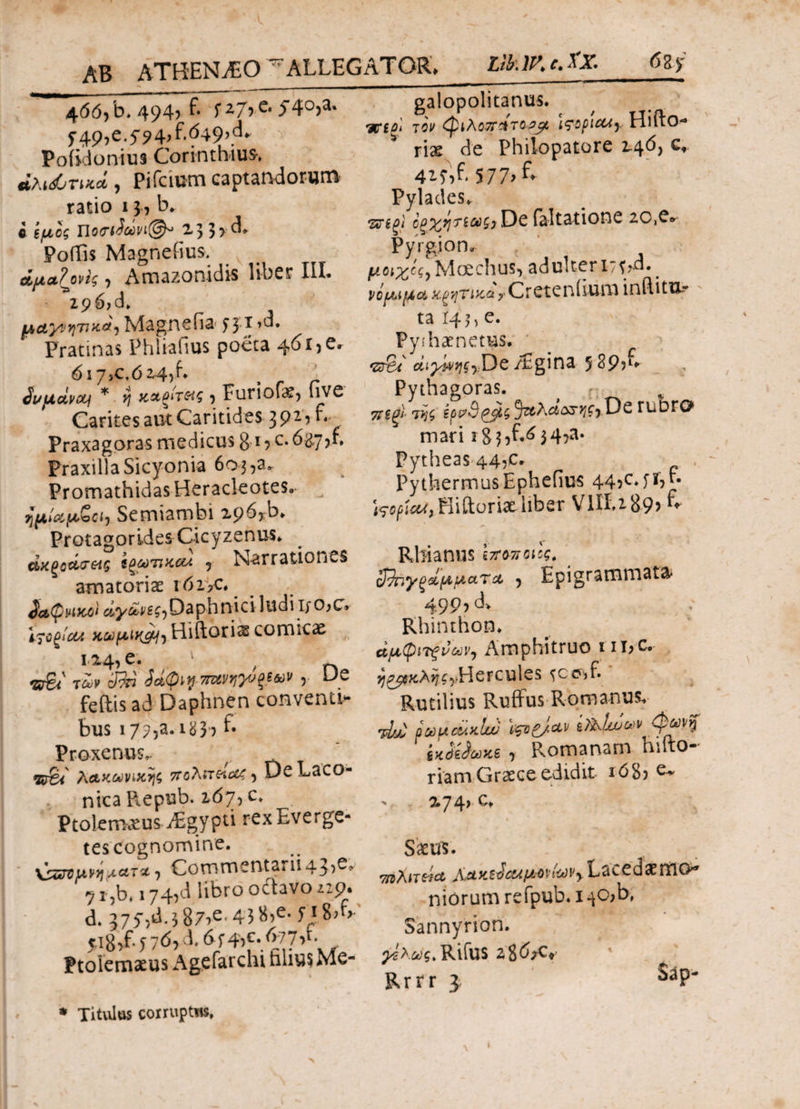 AB ATHENÆO ALLEGATOR. Lib. IV. c. XX. 685
466, b. 494, f. 527, e. 540, a.
549, e. 594, f. 649, d.
Posidonius Corinthius.
ἁλιευτικὰ, Piscium captandorum
ratio 13, b.
ὁ ἐμὸς Ποσειδώνιος 233, d.
Possis Magnesius.
ἀμαζονὶς, Amazonidis liber III.
296, d.
μαγνητικὰ, Magnesia 531, d.
Pratinas Phliasius poëta 461, e.
617, c. 624, f.
δυμάναι * ἢ καρίτεις, Furiosæ, sive
Carites aut Caritides 392, f.
Praxagoras medicus 81, c. 687, f.
Praxilla Sicyonia 603, a.
Promathidas Heracleotes.
ἡμίαμβοι, Semiambi 296, b.
Protagorides Cicyzenus.
ἀκροάσεις ἐρωτικαὶ, Narrationes
amatoriæ 162, c.
δαφνικοὶ ἀγῶνες, Daphnici ludi 150, c,
ἱστορίαι κωμικαὶ, Historiæ comicæ
124, e.
περὶ τῶν ἐπὶ δάφνῃ πανηγύρεων, De
festis ad Daphnen conventi-
bus 177, a. 183, f.
Proxenus.
περὶ λακωνικῆς πολιτείας, De Laco-
nica Repub. 267, c.
Ptolemæus Ægypti rex Everge-
tes cognomine.
ὑπομνήματα, Commentarii 43, e.
71, b. 174, d libro octavo 229.
d. 375, d. 387, e. 438, e. 518, f.
518, f. 576, d. 654, c. 677, f.
Ptolemæus Agesarchi filius Me-
galopolitanus.
περὶ τὸν φιλοπάτορα ἱστορίαι, Histo-
riæ de Philopatore 246, c.
425, f. 577, f.
Pylades.
περὶ ὀρχήσεως, De saltatione 20, e.
Pyrgion.
μοιχὸς, Mœchus, adulter 175, d.
νόμιμα κρητικὰ, Cretensium institu-
ta 143, e.
Pythænetus.
περὶ αἰγίνης, De Ægina 589, f.
Pythagoras.
περὶ τῆς ἐρυθρᾶς θαλάσσης, De rubro
mari 183, f. 634, a.
Pytheas 44, c.
Pythermus Ephesius 44, c. 51, f.
ἱστορίαι, Historiæ liber VIII. 289, f.
Rhianus ἐποποιός.
ἐπιγράμματα, Epigrammata
499, d.
Rhinthon.
ἀμφιτρύων, Amphitruo 111, c.
ἡρακλῆς, Hercules 500, f.
Rutilius Ruffus Romanus.
τὴν ῥωμαϊκὴν ἱστορίαν ἑλλήνων φωνῇ
ἐκδέδωκε, Romanam histo-
riam Græce edidit 168, e.
274, c.
Sæus.
πολιτεία Λακεδαιμονίων, Lacedæmo-
niorum respub. 140, b.
Sannyrion.
γέλως. Risus 286, c.
Rrrr 3 Sap-
* Titulus corruptus.